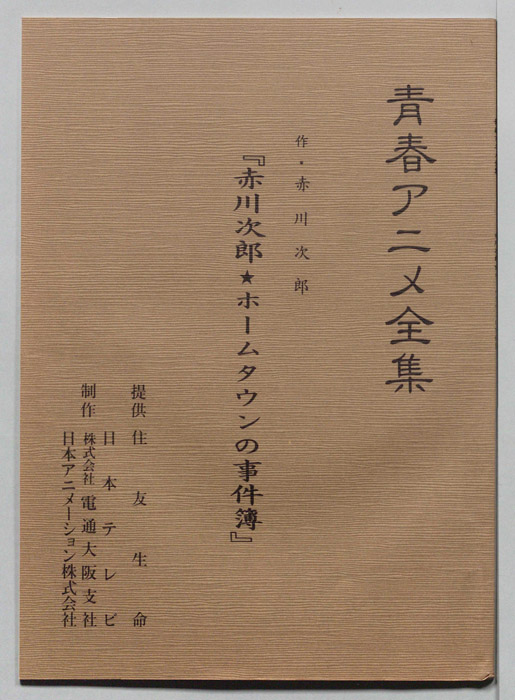 青春アニメ全集
作・赤川次郎
『赤川次郎★ホームタウンの事件簿』
提供 住友生命
制作 日本テレビ
株式会社 電通大阪支社
日本アニメーション株式会社